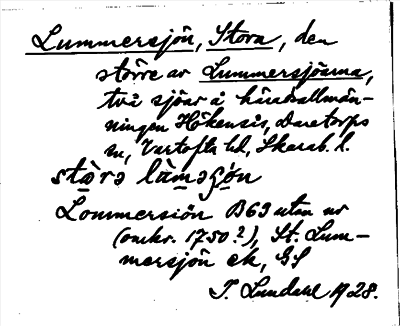 Lummersjön, Stora, den
större av Lummersjöarna,
två sjöar å häradsallmän-
ningen Hökensås, Daretorps
sn, Vartofta hd, Skarab. l.
stɔ̀rə làməʂɔ́n
Lommersiön B69 utan nr
(omkr. 1750?), St. Lum-
mersjön ek, GS
T. Lundahl 1928.